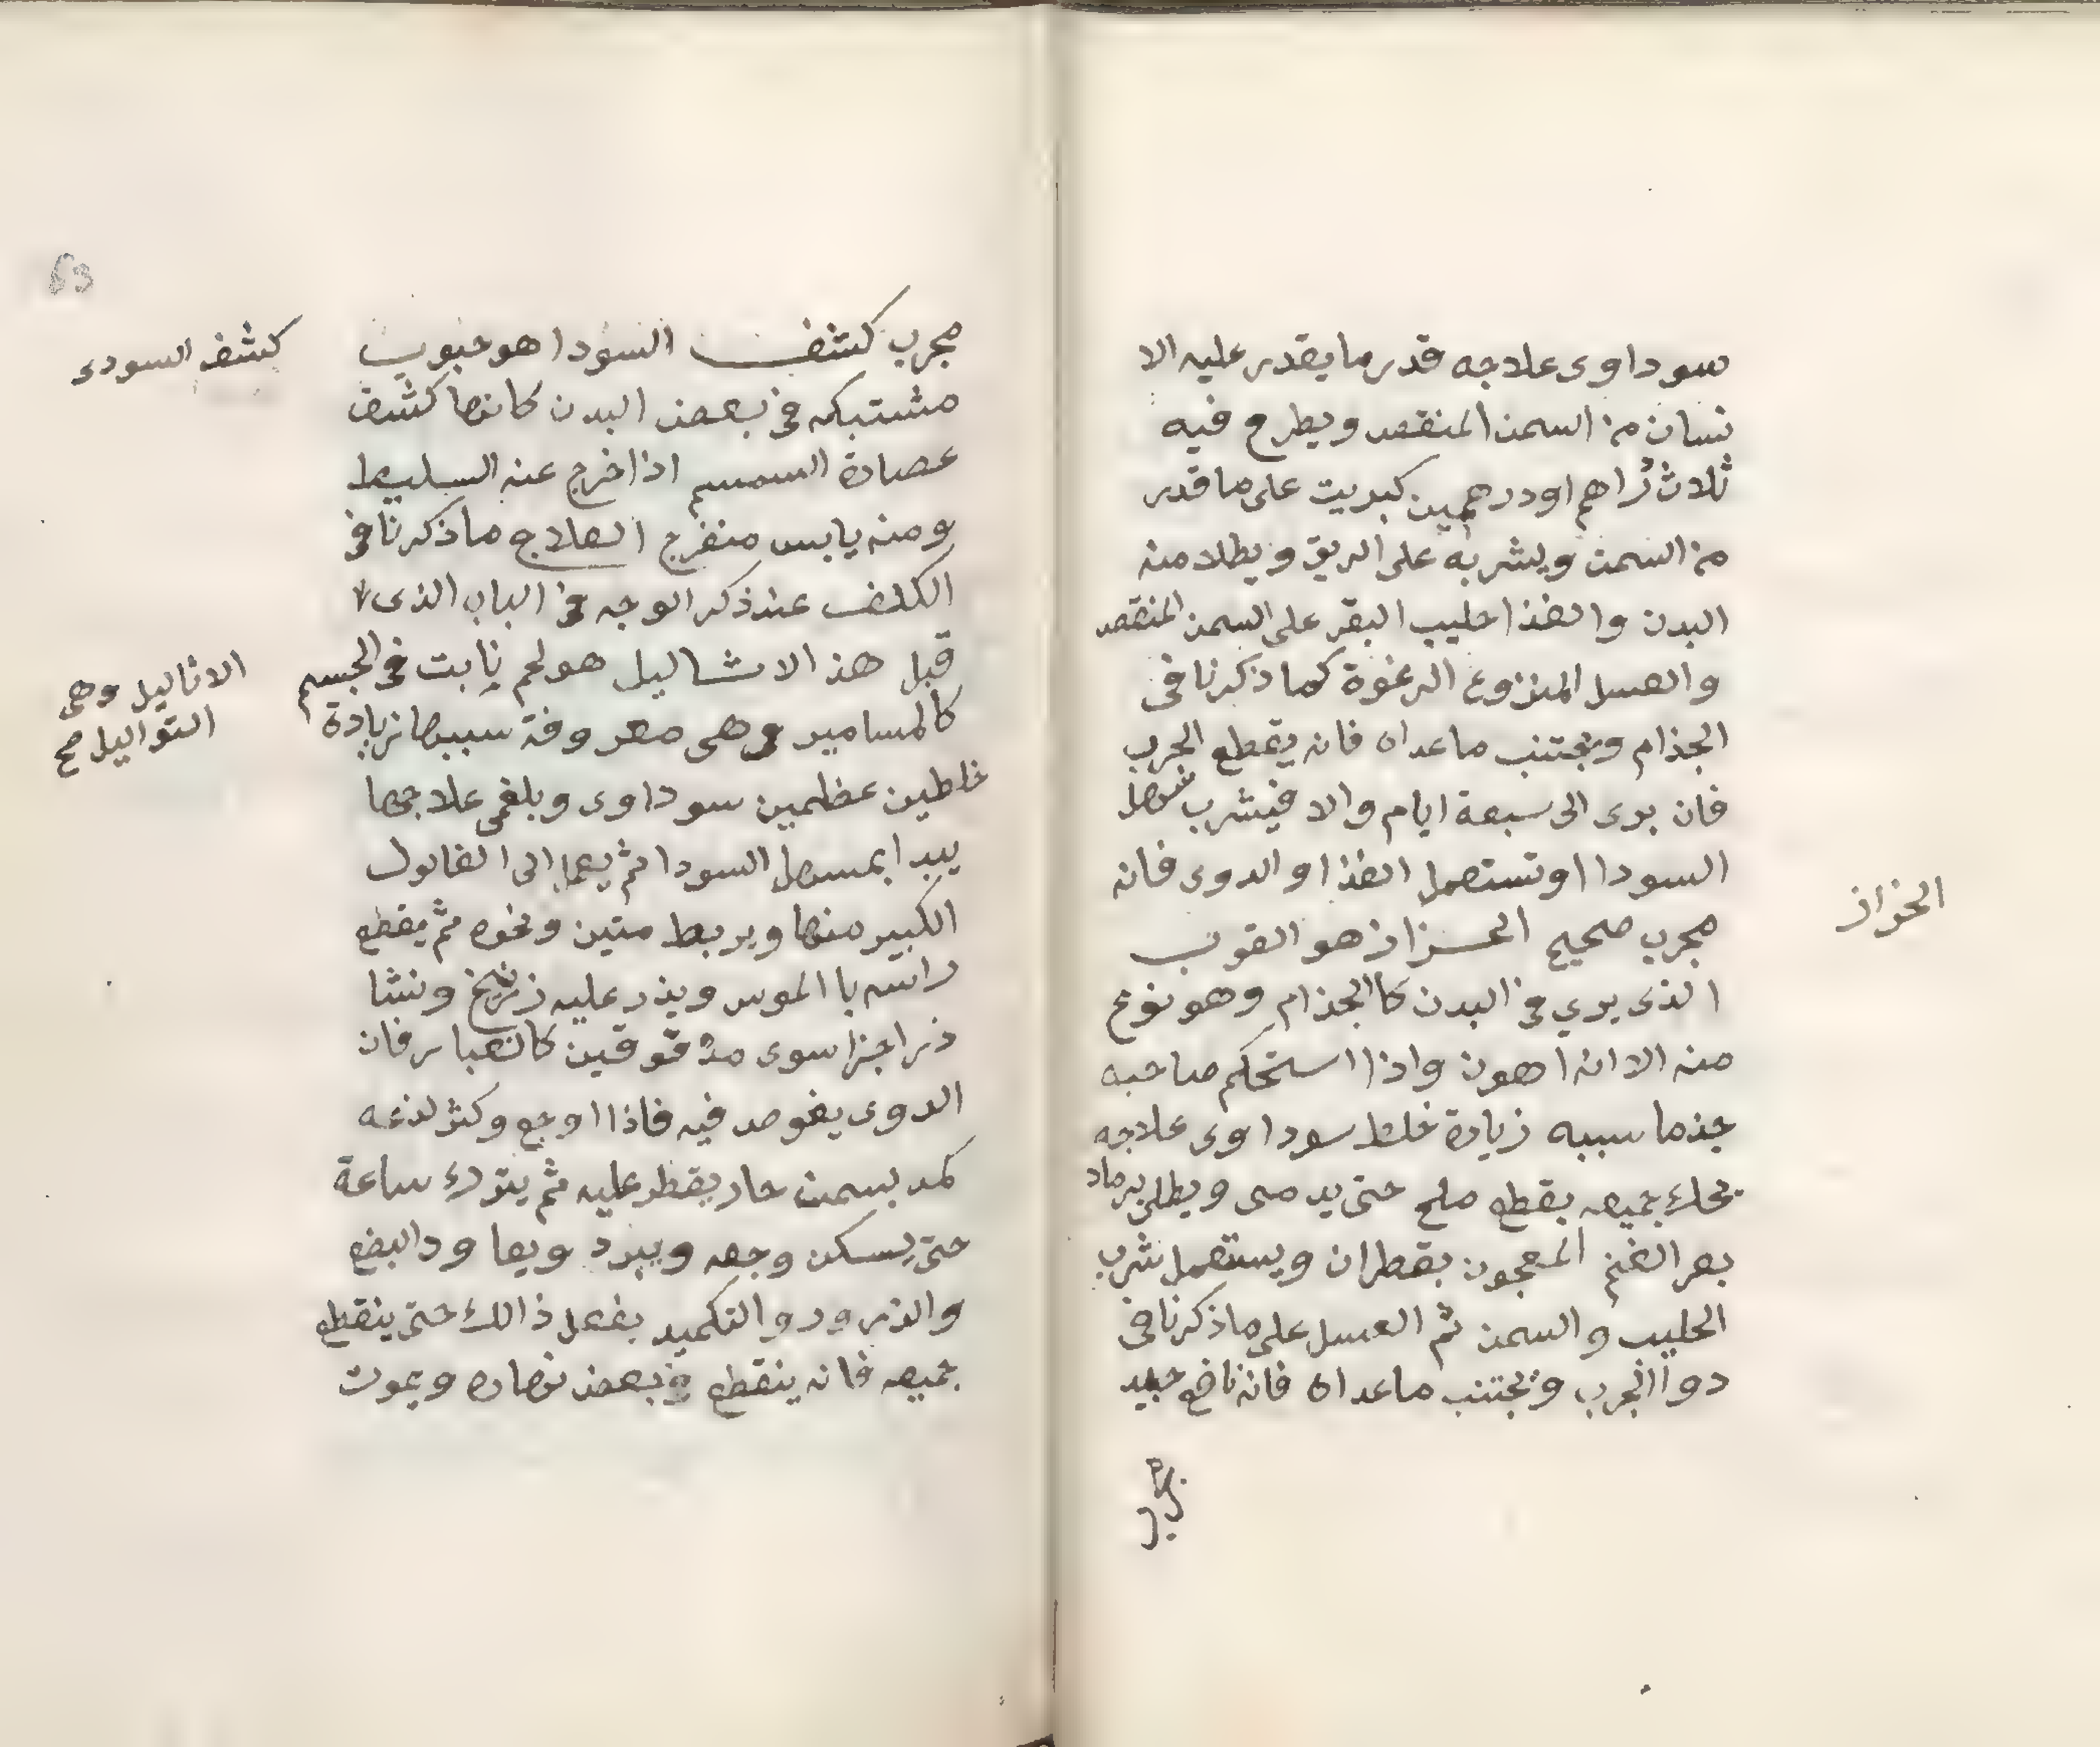 سوداوى علاجه قدر ما يقدر عليه الا
نسان من السمن المنقصد ويطرح فيه
ثلاث دراهم او درهمين كبريت على ما قدر
من السمن ويشربه على الريق ويطلا منه
البدن والغذا حليب البقر على السمن المنقصد
والعسل المنزوع الرغوة كما ذكرنا فى
الجذام ويجتنب ما عداه فانه يقطع الجرب
فان برى الى سبعة ايام والا فيشرب مسهل
السودا او تستعمل الغذا والدوى فانه
مجرب صحيح الحزاز هو القوب
الذى يرى فى البدن كا الجذام وهو نوع
منه الا انه اهون واذا استحكم صاحبه
جذما سببه زيادة خلط سوداوى علاجه
يحك جميعه بقطع ملح حتى يدمى ويطلى برماد
بعر الغنم المعجون بقطران ويستعمل شرب
الحليب والسمن ثم العسل على ما ذكرنا فى
دوا الجرب ويجتنب ما عداه فانه نافع جيد
الحزاز
مجرب كشف السودا هو حبوب
مشتبكه فى بعض البدن كانها كشف
عصارة السمسم اذا خرج عنه السليط
ومنه يابس منفرج العلاج ما ذكرنا فى
الكلف عند ذكر الوجه فى الباب الذى
قبل هذ الاثاليل هو لحم نابت فى الجسم
كالمسامير وهى معروفة سببها زيادة
خلطين عظمين سوداوى وبلغمى علاجها
يبدا بمسهل السودا ثم يعمل الى الفالول
الكبير منها ويربط متين ونحوه ثم يقطع
راسه با الموس ويذر عليه زرنيخ ونشا
ذر اجزا سوى مدقوقين كالغبار فان
الدوى يغوص فيه فاذا اوجع وكثر لذعه
كمد بسمن حار يقطر عليه ثم يترك ساعة
حتى يسكن وجعه ويبرد ويعاود البضع
والذرور والتكميد يفعل ذالك حتى ينقطع
جميعه فانه ينقطع فى بعض نهاره ويموت
كشف السودى
الاثاليل وهى
التواليل صح
63